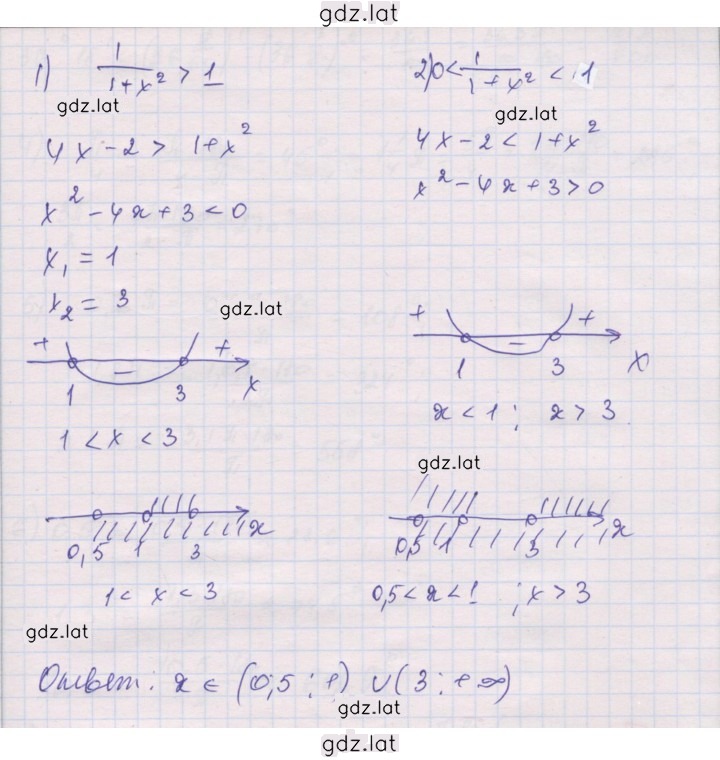 gdz.lat
1) 1/(1+x²) > 1
2) 0 < 1/(1+x²) < 1
gdz.lat
gdz.lat
4x - 2 > 1+x²
4x - 2 < 1+x²
x² - 4x + 3 < 0
x² - 4x + 3 > 0
x₁ = 1
x₂ = 3
gdz.lat
+ − +
1 3 x
+ − +
1 3 x
1 < x < 3
x < 1 ; x > 3
gdz.lat
0,5 1 3 x
0,5 1 3 x
1 < x < 3
0,5 < x < 1 ; x > 3
gdz.lat
Ответ: x ∈ (0,5 ; 1) ∪ (3 ; +∞)
gdz.lat
gdz.lat